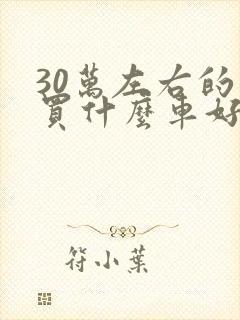 30萬左右的
買什麼車好
符小葉